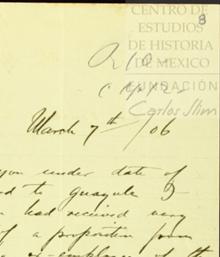 CENTRO DE
ESTUDIOS
DE HISTORIA
DE MEXICO
FUNDACIÓN
Carlos Slim
8
March 7th/06
you under date of
to guayule I
had received very
of a proposition from
ex-employee of the